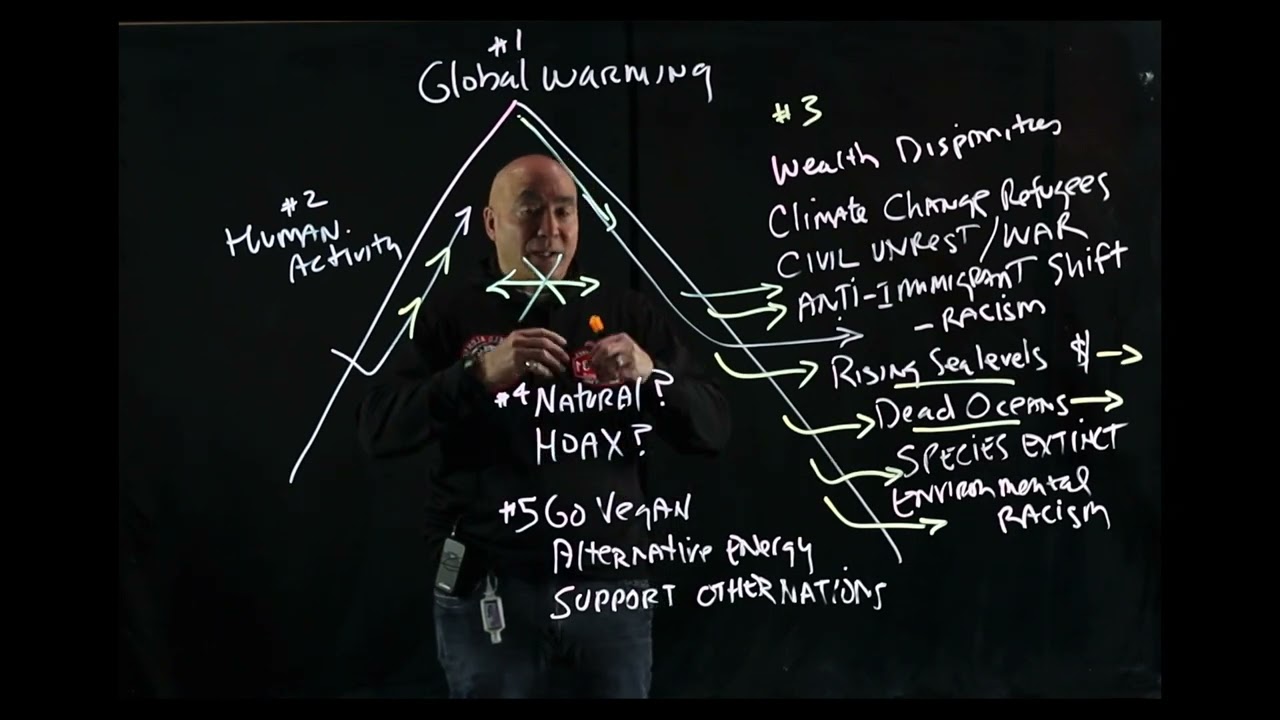 #1
Global Warming
#2
Human.
Activity
#3
Wealth Disparities
Climate Change Refugees
Civil Unrest / War
Anti-Immigrant Shift
- Racism
Rising Sea levels $
Dead Oceans
Species Extinct
Environmental
Racism
#4 Natural?
Hoax?
#5 Go Vegan
Alternative Energy
Support Other Nations